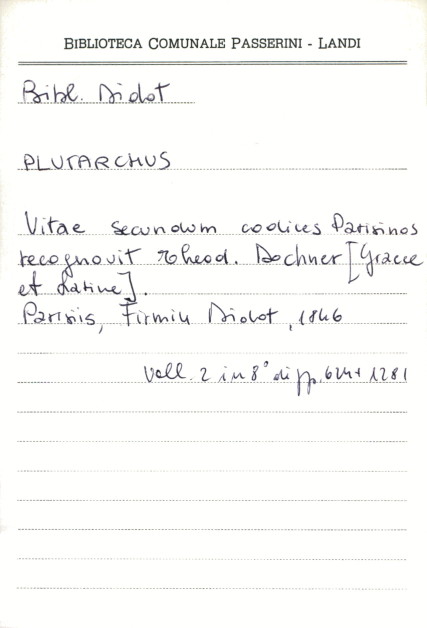 BIBLIOTECA COMUNALE PASSERINI - LANDI
Bibl. Didot
PLUTARCHUS
Vitae secundum codices Parisinos
recognovit Theod. Doehner [Graece
et Latine].
Parisiis, Firmin Didot, 1846
Voll. 2 in 8° di pp. 624+1281